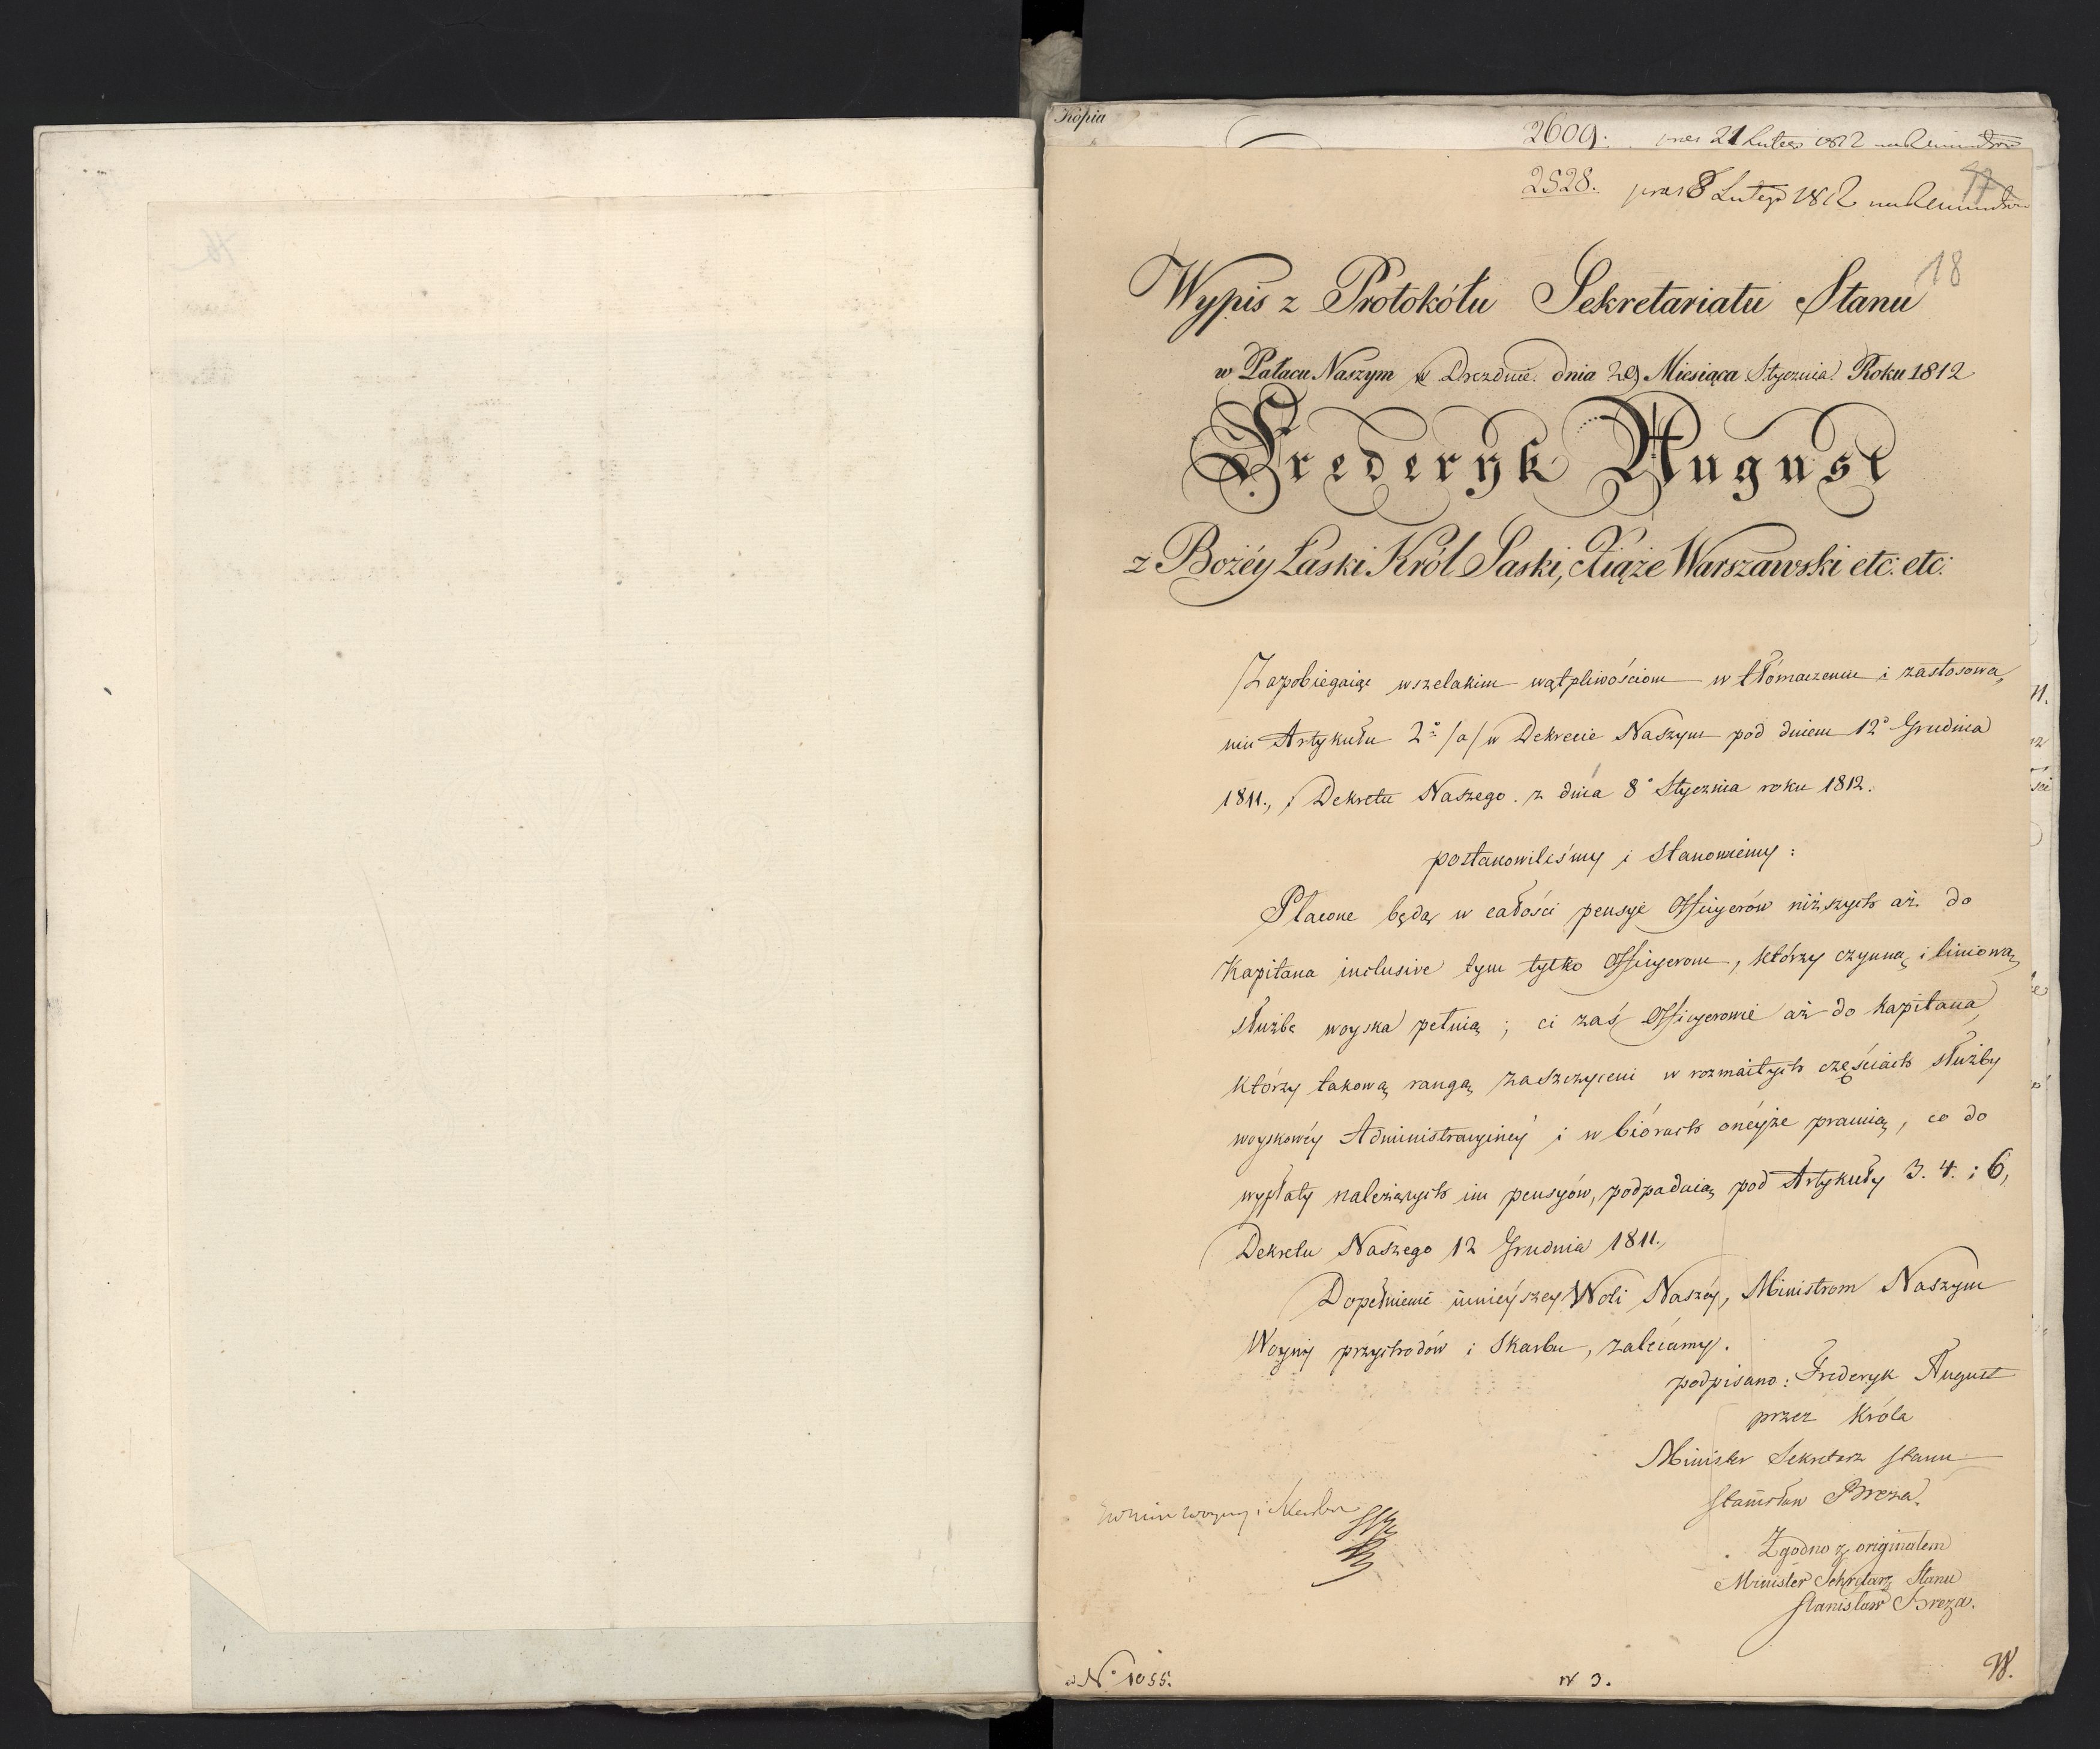 Kopia
2609. prez 21 Lutego 1812
2528. praes 8 Lutego 1812
17
18
Wypis z Protokółu Sekretariatu Stanu
w Pałacu Naszym w Dreznie dnia 29 Miesiąca Stycznia Roku 1812
Frederyk August
z Bożéy Łaski Król Saski, Xiąże Warszawski etc: etc:
Zapobiegaiąc wszelakim wątpliwościom w tłómaczeniu i zastosowa,
niu Artykułu 2º /a/ w Dekrecie Naszym pod dniem 12º Grudnia
1811., i Dekretu Naszego z dnia 8º Stycznia roku 1812.
postanowiliśmy i stanowiemy:
Płacone będą w całości pensye Officyerów niższych aż do
Kapitana inclusive tym tylko Officyerom, którzy czynną i liniową
służbę woyska pełnią; ci zaś Officyerowie aż do Kapitana,
którzy takową rangą zaszczyceni w rozmaitych częściach służby
woyskowéy Administracyinéy i w biórach onéyże pracuią, co do
wypłaty należących im pensyów, podpadaią pod Artykuły 3. 4. i 6,
Dekretu Naszego 12 Grudnia 1811.,
Dopełnienie ninieyszey Woli Naszéy, Ministrom Naszym
Woyny przychodów i Skarbu, zalecamy.
podpisano: Frederyk August
przez Króla
Minister Sekretarz Stanu
Stanisław Breza.
Zgodno z originałem
Minister Sekretarz Stanu
Stanisław Breza.
woyny i Skarbu
Nº 1055.
N 3.
W.